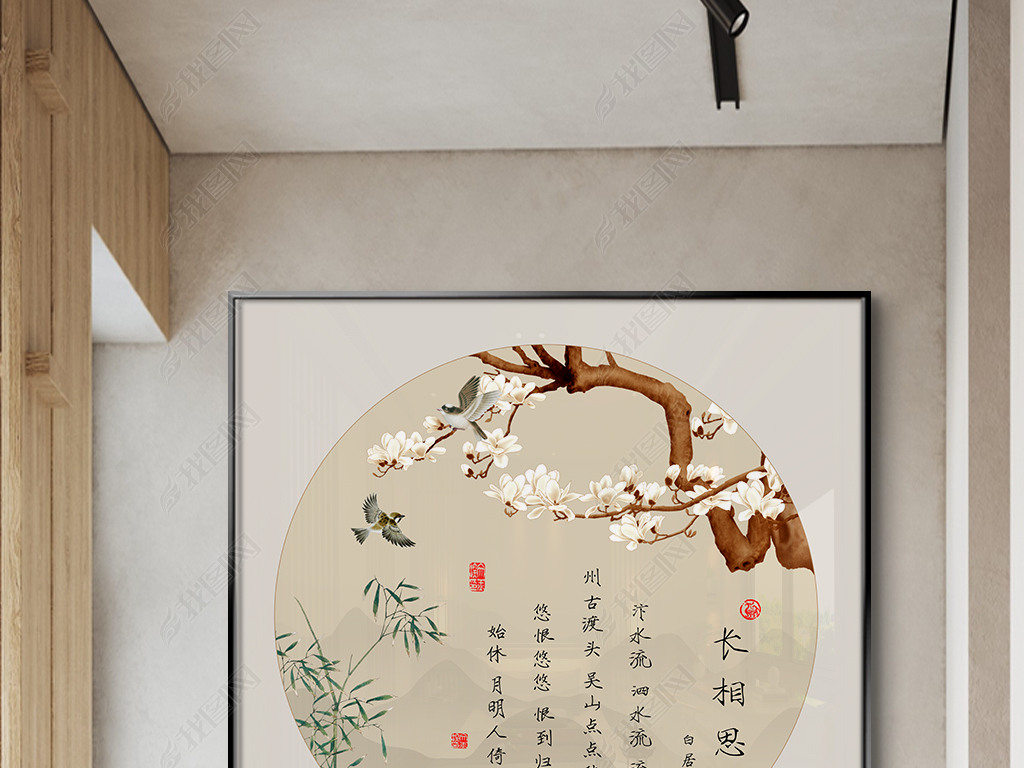 长相思
白居
汴水流泗水流流
州古渡头吴山点点
悠恨悠悠恨到归
始休月明人倚
找图网